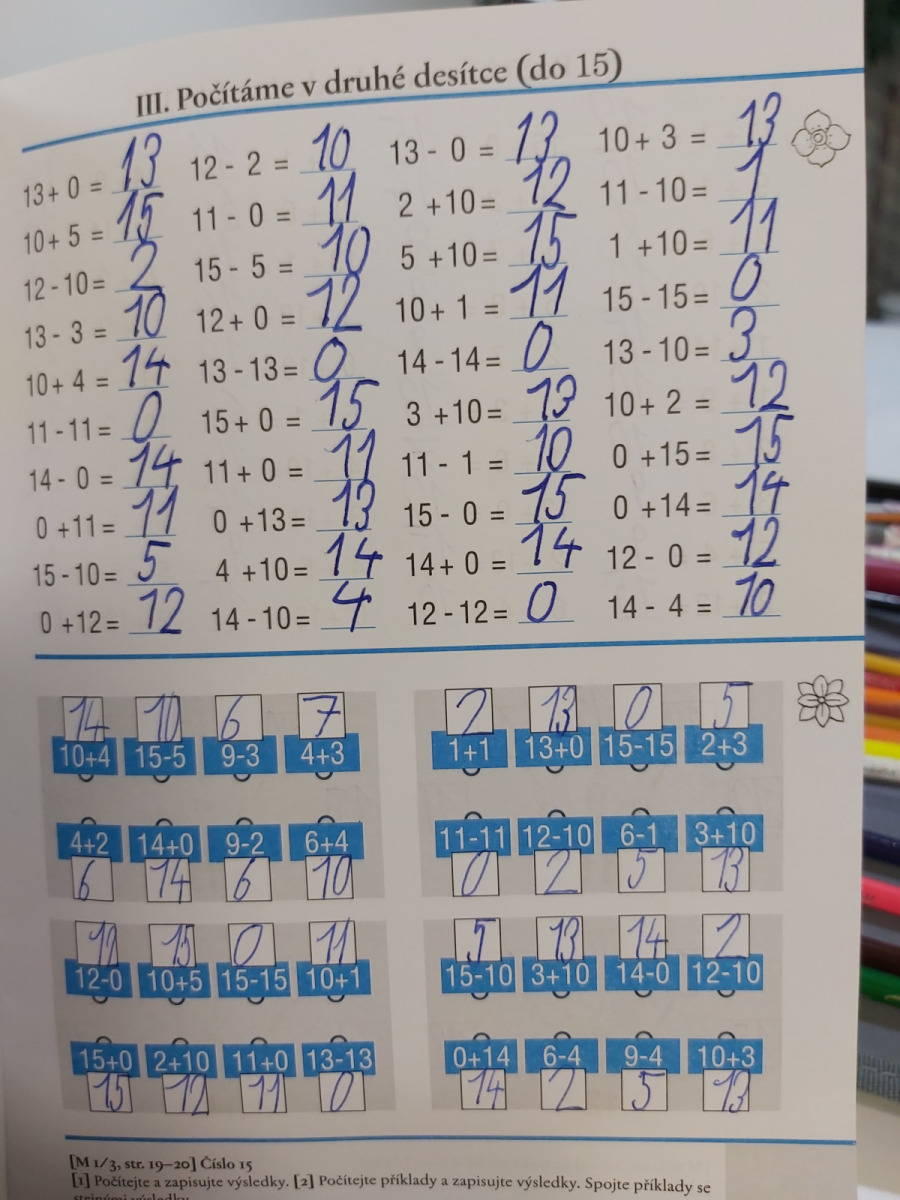 III. Počítáme v druhé desítce (do 15)
13+ 0 = 13 12 - 2 = 10 13 - 0 = 13 10+ 3 = 13
10+ 5 = 15 11 - 0 = 11 2 +10= 12 11 - 10= 1
12 - 10= 2 15 - 5 = 10 5 +10= 15 1 +10= 11
13 - 3 = 10 12+ 0 = 12 10+ 1 = 11 15 - 15= 0
10+ 4 = 14 13 - 13= 0 14 - 14= 0 13 - 10= 3
11 - 11= 0 15+ 0 = 15 3 +10= 13 10+ 2 = 12
14 - 0 = 14 11+ 0 = 11 11 - 1 = 10 0 +15= 15
0 +11= 11 0 +13= 13 15 - 0 = 15 0 +14= 14
15 - 10= 5 4 +10= 14 14+ 0 = 14 12 - 0 = 12
0 +12= 12 14 - 10= 4 12 - 12= 0 14 - 4 = 10
14 10 6 7 2 13 0 5
10+4 15-5 9-3 4+3 1+1 13+0 15-15 2+3
4+2 14+0 9-2 6+4 11-11 12-10 6-1 3+10
6 14 6 10 0 2 5 13
15 0 11 5 13 14 2
12-0 10+5 15-15 10+1 15-10 3+10 14-0 12-10
15+0 2+10 11+0 13-13 0+14 6-4 9-4 10+3
15 12 11 0 14 2 5 13
[M 1/3, str. 19–20] Číslo 15
[1] Počítejte a zapisujte výsledky. [2] Počítejte příklady a zapisujte výsledky. Spojte příklady se